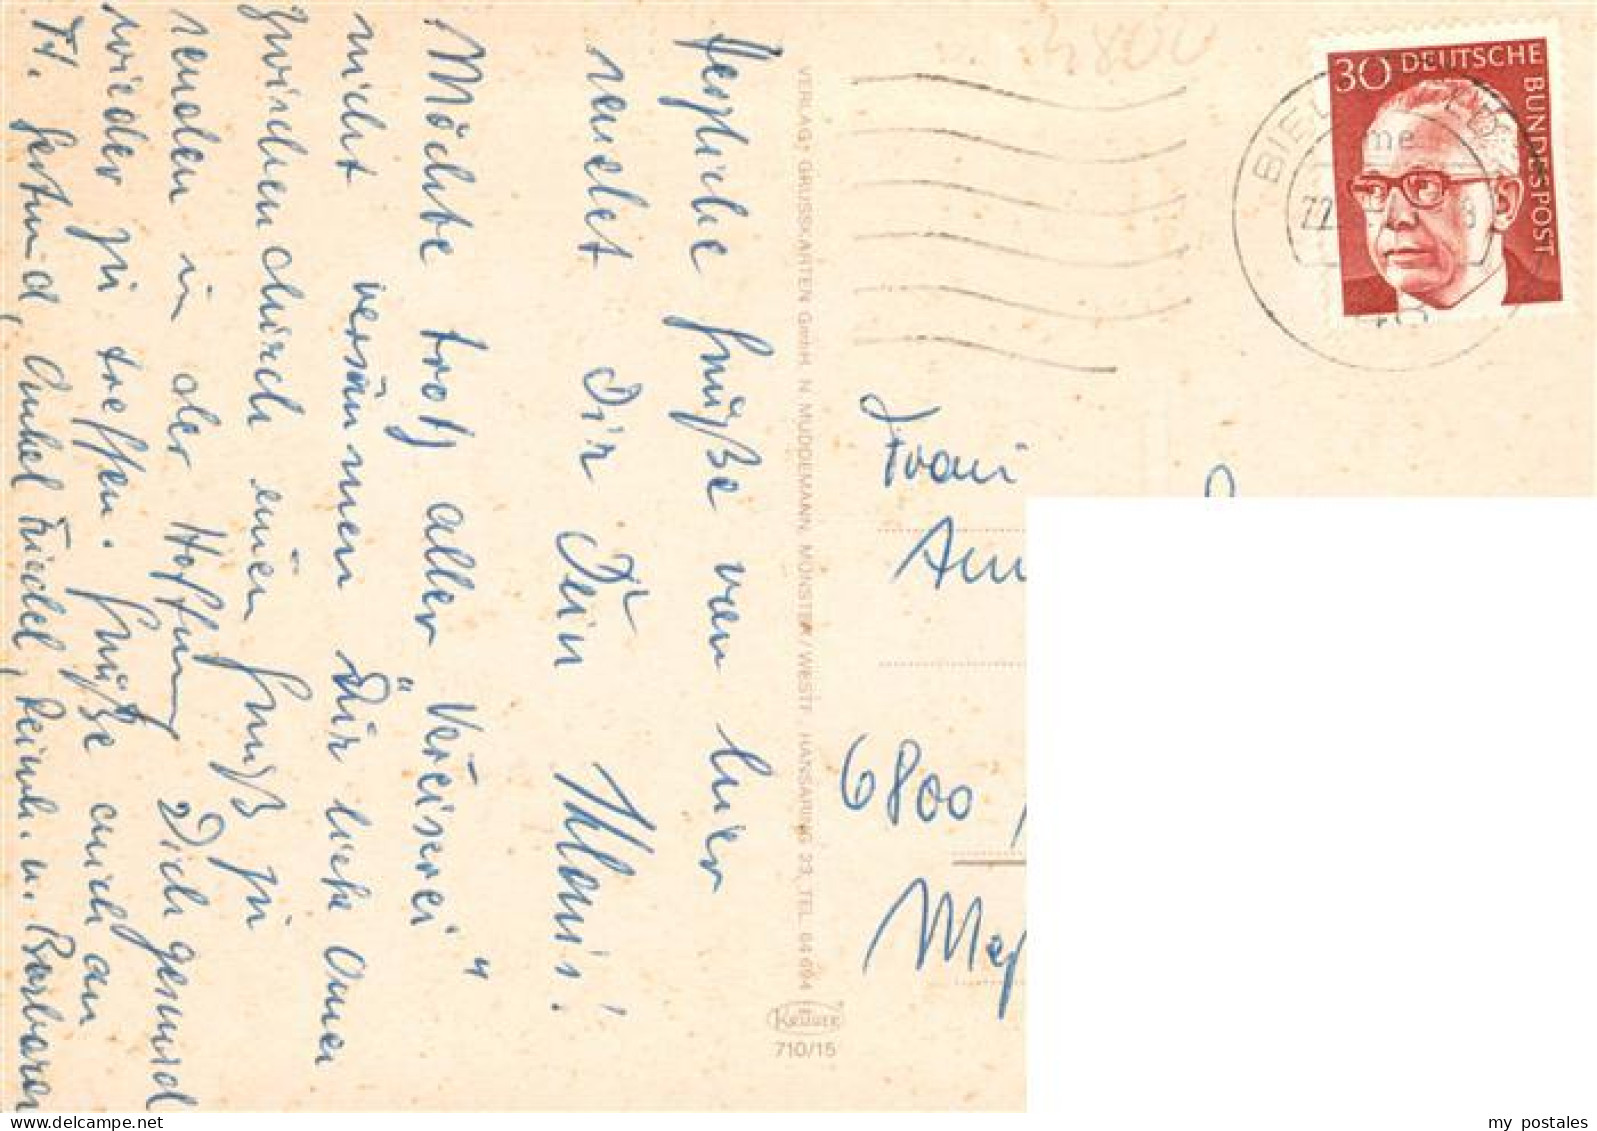 Herzliche Grüße von hier
sendet Dir Dein Klaus!
Möchte trotz aller "Vereiserei"
nicht versäumen Dir liebe Oma
zwischendurch einen Gruß zu
senden in der Hoffnung Dich gesund
wieder zu treffen. Grüße auch an
Fr. Freund, Onkel Friedel, Reinh. u. Barbara
VERLAG: GRUSSKARTEN GmbH. N. MUDDEMANN, MÜNSTER/WESTF. HANSARING 33, TEL. 64 694
KRÜGER
710/15
3 4800
30 DEUTSCHE
BUNDESPOST
BIEL
me
22.
8
Frau
Ann
6800